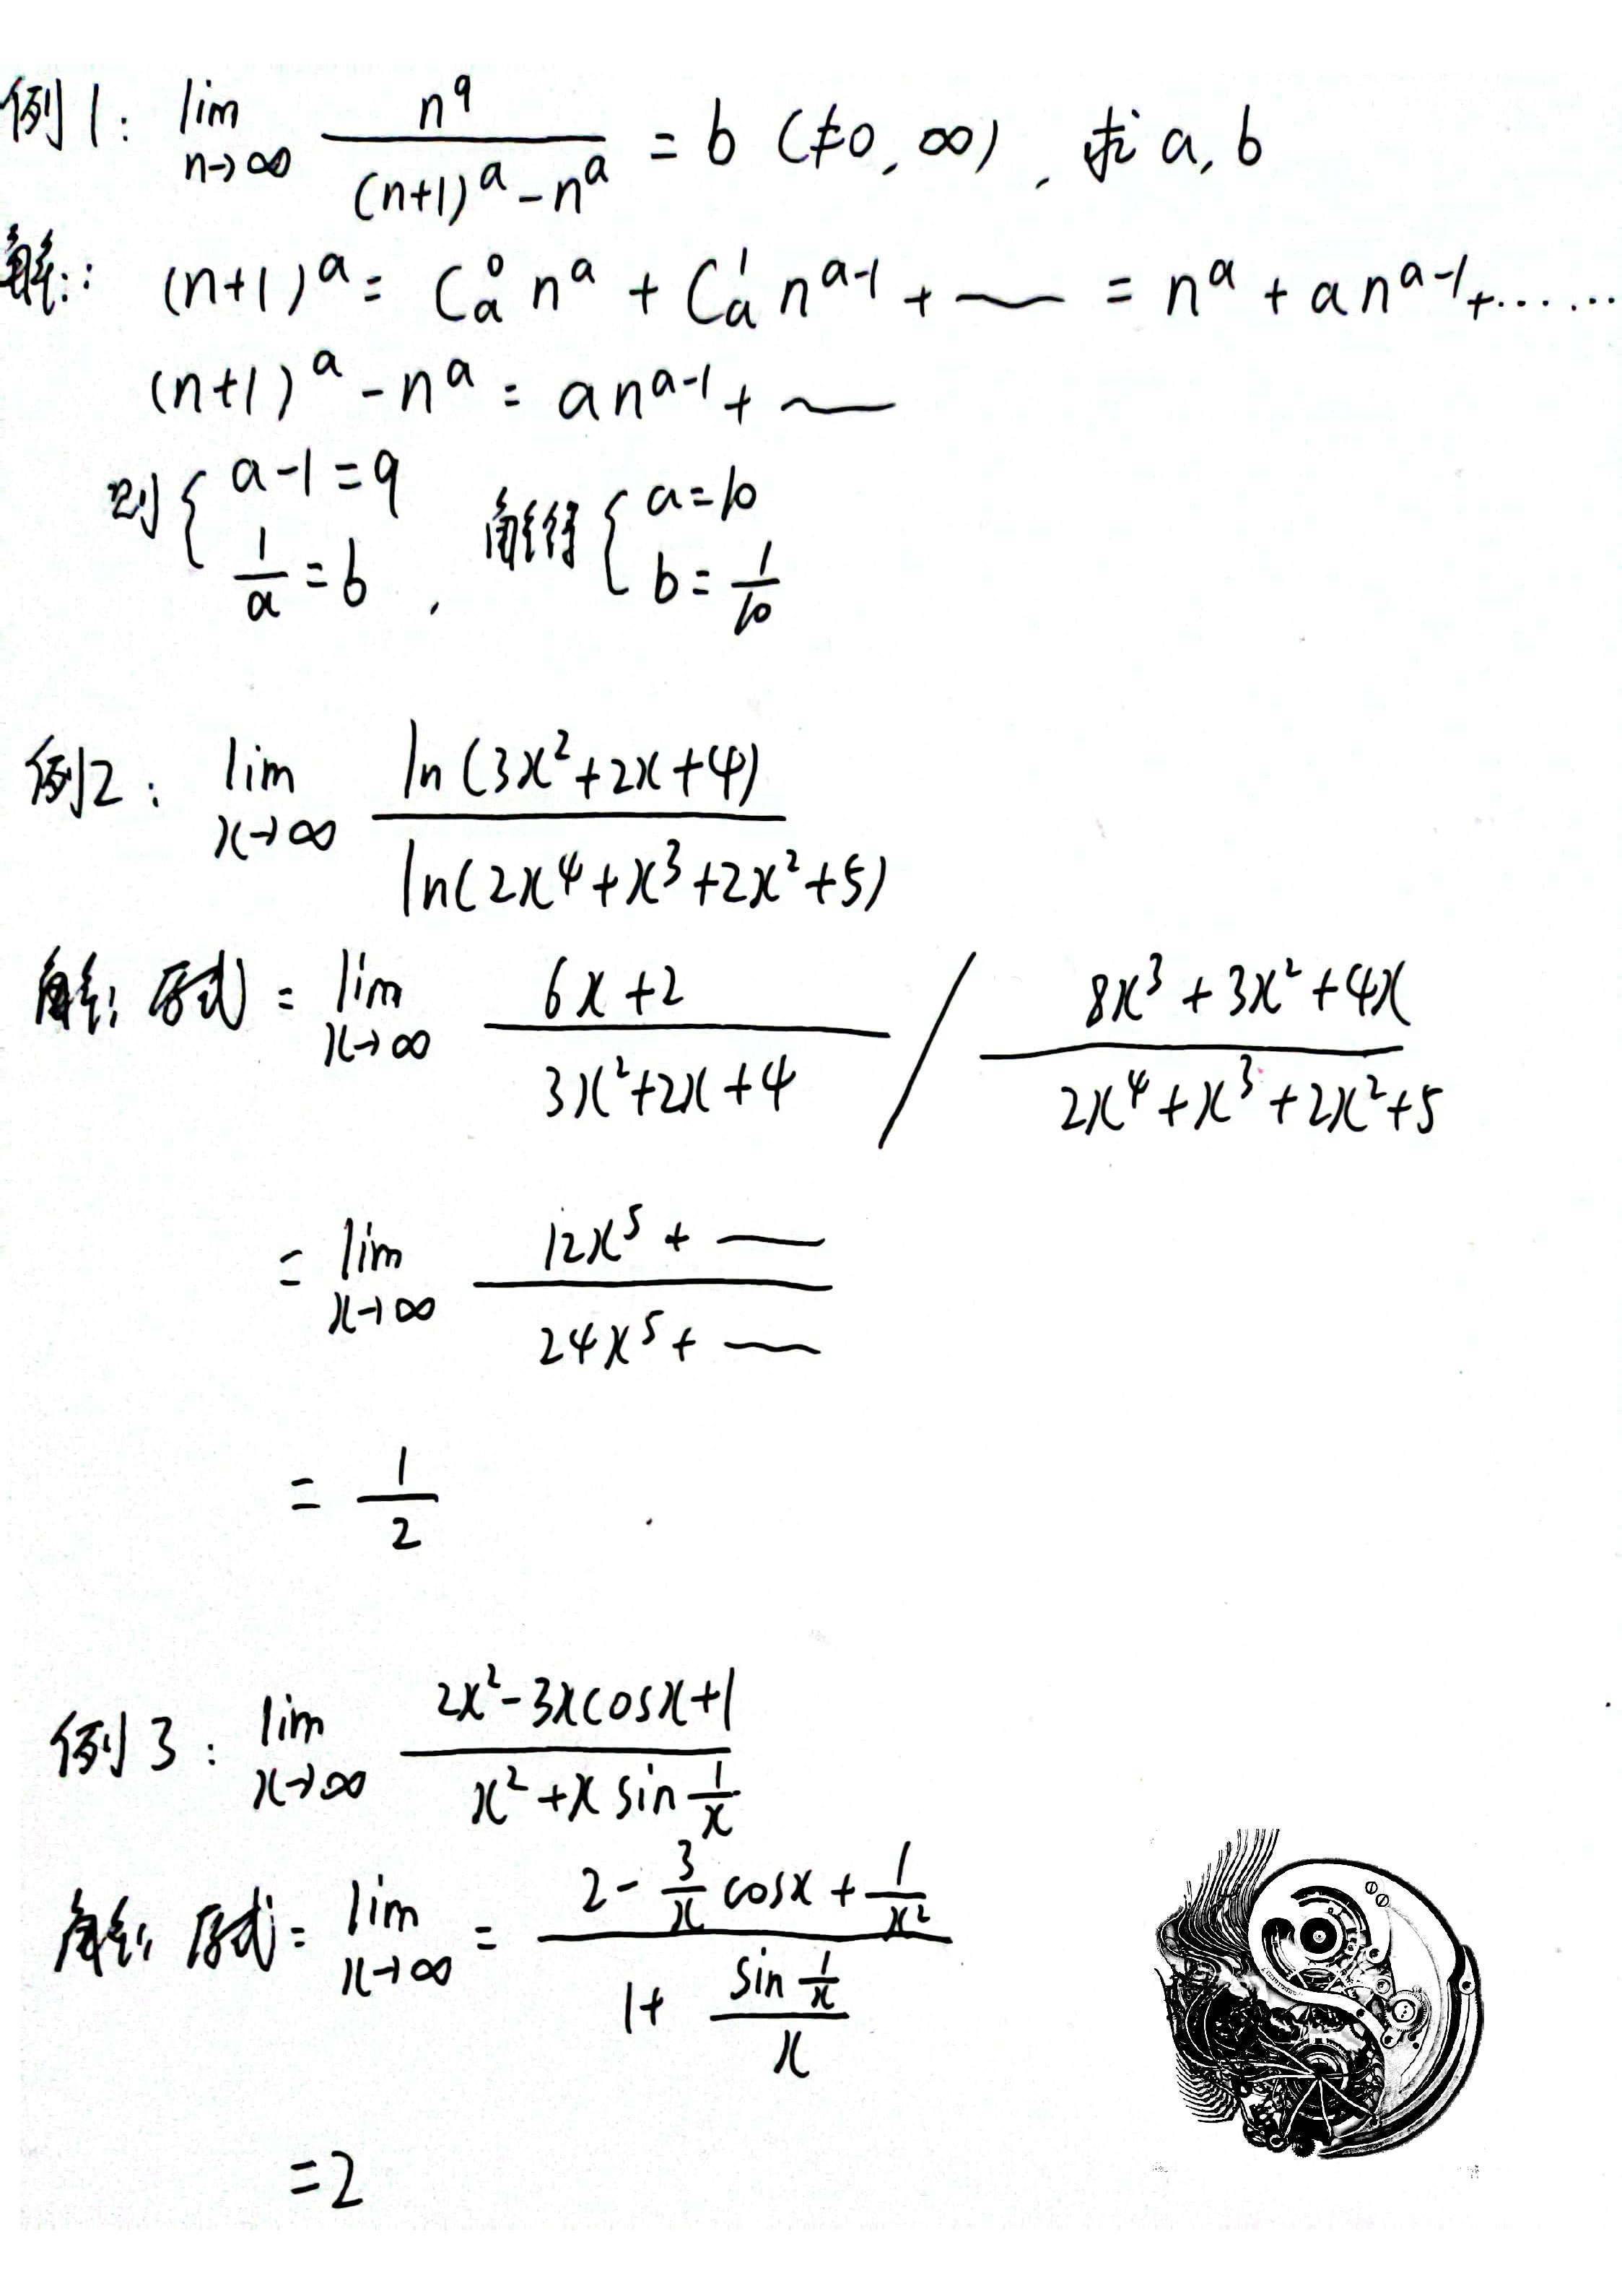 例1: lim n→∞ n^9 / ((n+1)^a - n^a) = b (≠0, ∞), 求a, b
解: (n+1)^a = C_a^0 n^a + C_a^1 n^(a-1) + —— = n^a + a n^(a-1) + ……
(n+1)^a - n^a = a n^(a-1) + ——
则 { a-1=9, 1/a = b , 解得 { a=10, b=1/10
例2: lim x→∞ ln(3x²+2x+4) / ln(2x⁴+x³+2x²+5)
解: 原式 = lim x→∞ (6x+2)/(3x²+2x+4) / (8x³+3x²+4x)/(2x⁴+x³+2x²+5)
= lim x→∞ (12x⁵ + ——)/(24x⁵ + ——)
= 1/2
例3: lim x→∞ (2x²-3xcosx+1)/(x²+x sin 1/x)
解: 原式 = lim x→∞ = (2 - 3/x cosx + 1/x²)/(1 + (sin 1/x)/x)
=2